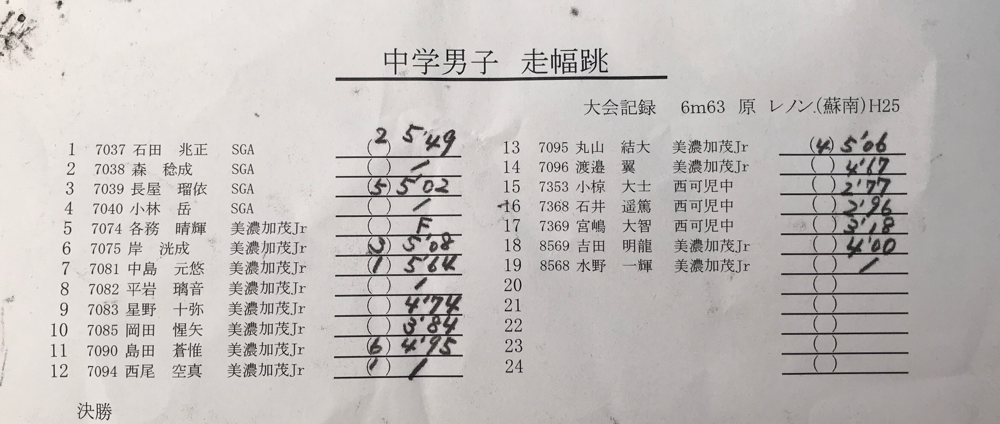 中学男子 走幅跳
大会記録 6m63 原 レノン.(蘇南)H25
1 7037 石田 兆正 SGA (2) 5'49
2 7038 森 稔成 SGA ( ) /
3 7039 長屋 瑠依 SGA (5) 5'02
4 7040 小林 岳 SGA ( ) /
5 7074 各務 晴輝 美濃加茂Jr ( ) F
6 7075 岸 洸成 美濃加茂Jr (3) 5'08
7 7081 中島 元悠 美濃加茂Jr (1) 5'64
8 7082 平岩 璃音 美濃加茂Jr ( ) /
9 7083 星野 十弥 美濃加茂Jr ( ) 4'74
10 7085 岡田 惺矢 美濃加茂Jr ( ) 3'84
11 7090 島田 蒼惟 美濃加茂Jr (6) 4'95
12 7094 西尾 空真 美濃加茂Jr ( ) /
13 7095 丸山 結大 美濃加茂Jr (4) 5'06
14 7096 渡邉 翼 美濃加茂Jr ( ) 4'67
15 7353 小椋 大士 西可児中 ( ) 2'77
16 7368 石井 遥篤 西可児中 ( ) 2'96
17 7369 宮嶋 大智 西可児中 ( ) 3'18
18 8569 吉田 明龍 美濃加茂Jr ( ) 4'00
19 8568 水野 一輝 美濃加茂Jr ( ) /
20 ( )
21 ( )
22 ( )
23 ( )
24 ( )
決勝